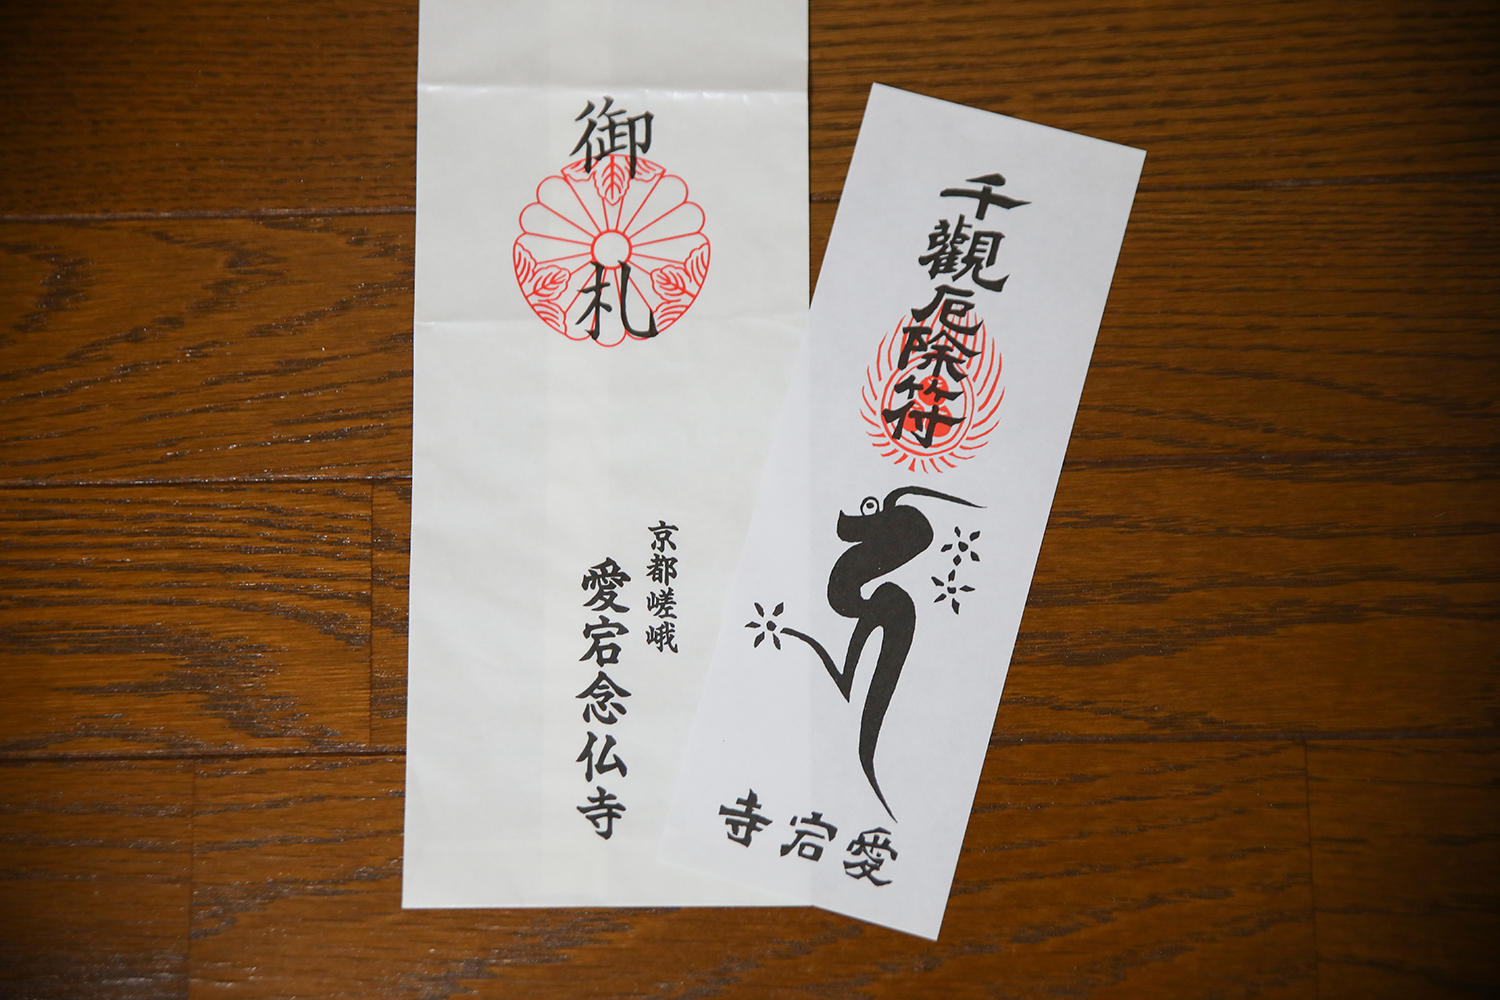 御札
京都嵯峨
愛宕念仏寺
千觀厄除符
愛宕寺